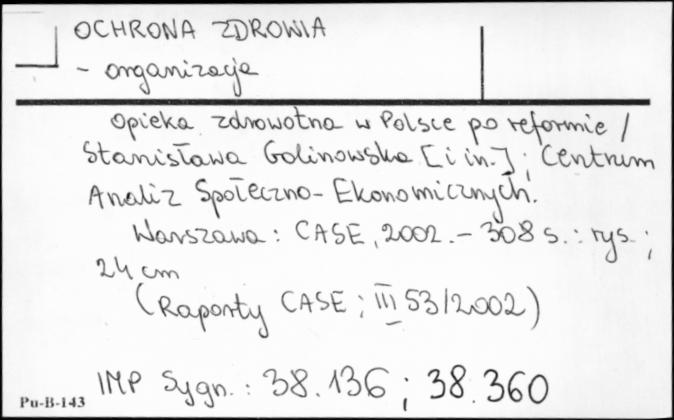 OCHRONA ZDROWIA
- organizacja
Opieka zdrowotna w Polsce po reformie /
Stanisława Golinowska [i in.] ; Centrum
Analiz Społeczno-Ekonomicznych.
Warszawa : CASE, 2002. - 308 s. : rys. ;
24 cm
(Raporty CASE ; III 53/2002)
IMP Sygn. : 38.136 ; 38.360
Pu-B-143